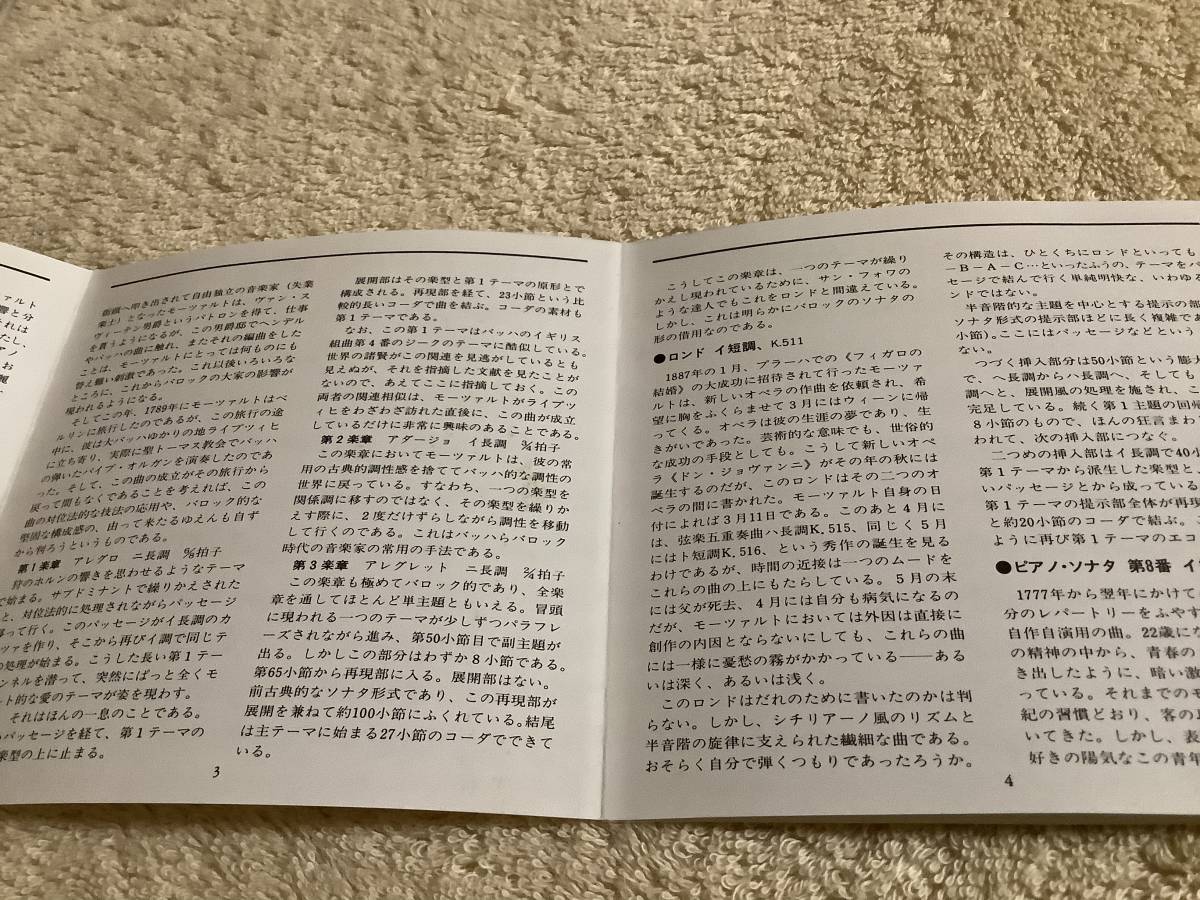 ァルト
響と分
これは
たし、
アノ
風
街頭へ叩き出されて自由独立の音楽家（失業
楽士）となったモーツァルトは、ヴァン・ス
ヴィーテン男爵というパトロンを得て、仕事
を貰うようになるが、この男爵邸でヘンデル
やバッハの曲に触れ、またそれの編曲をした
ことは、モーツァルトにとっては何ものにも
替え難い刺激であった。これ以後いろいろな
ところに、これからバロックの大家の影響が
現われるようになる。
そしてこの年、1789年にモーツァルトはベ
ルリンに旅行したのであるが、この旅行の途
中に、彼は大バッハゆかりの地ライプツィヒ
に立ち寄り、実際に聖トーマス教会でバッハ
の弾いたパイプ・オルガンを演奏したのであ
った。そして、この曲の成立がその旅行から
戻って間もなくであることを考えれば、この
曲の対位法的な技法の応用や、バロック的な
堅固な構成感の、由って来たるゆえんも自ず
から判ろうというものである。
第1楽章 アレグロ ニ長調 6/8拍子
狩のホルンの響きを思わせるようなテーマ
で始まる。サブドミナントで繰りかえされた
と、対位法的に処理されながらパッセージ
移って行く。このパッセージがイ長調のカ
ツァを作り、そこから再びイ調で同じテ
の処理が始まる。こうした長い第1テー
ンネルを潜って、突然にぱっと全くモ
ルト的な愛のテーマが姿を現わす。
それはほんの一息のことである。
いパッセージを経て、第1テーマの
楽型の上に止まる。
展開部はその楽型と第1テーマの原形とで
構成される。再現部を経て、23小節という比
較的長いコーダで曲を結ぶ。コーダの素材も
第1テーマである。
なお、この第1テーマはバッハのイギリス
組曲第4番のジークのテーマに酷似している。
世界の諸賢がこの関連を見逃がしているとも
見えぬが、それを指摘した文献を見たことが
ないので、あえてここに指摘しておく。この
両者の関連相似は、モーツァルトがライプツ
ィヒをわざわざ訪れた直後に、この曲が成立
しているだけに非常に興味のあることである。
第2楽章 アダージョ イ長調 3/4拍子
この楽章においてモーツァルトは、彼の常
用の古典的調性感を捨ててバッハ的な調性の
世界に戻っている。すなわち、一つの楽型を
関係調に移すのではなく、その楽型を繰りか
えす際に、2度だけずらしながら調性を移動
して行くのである。これはバッハらバロック
時代の音楽家の常用の手法である。
第3楽章 アレグレット ニ長調 2/4拍子
この楽章も極めてバロック的であり、全楽
章を通してほとんど単主題ともいえる。冒頭
に現われる一つのテーマが少しずつパラフレ
ーズされながら進み、第50小節目で副主題が
出る。しかしこの部分はわずか8小節である。
第65小節から再現部に入る。展開部はない。
前古典的なソナタ形式であり、この再現部が
展開を兼ねて約100小節にふくれている。結尾
は主テーマに始まる27小節のコーダでできて
いる。
3
こうしてこの楽章は、一つのテーマが繰り
かえし現われているために、サン・フォワの
ような達人でもこれをロンドと間違えている。
しかし、これは明らかにバロックのソナタの
形の借用なのである。
●ロンド イ短調、K.511
1887年の1月、プラーハでの《フィガロの
結婚》の大成功に招待されて行ったモーツァ
ルトは、新しいオペラの作曲を依頼され、希
望に胸をふくらませて3月にはウィーンに帰
ってくる。オペラは彼の生涯の夢であり、生
きがいであった。芸術的な意味でも、世俗的
な成功の手段としても。こうして新しいオペ
ラ《ドン・ジョヴァンニ》がその年の秋には
誕生するのだが、このロンドはその二つのオ
ペラの間に書かれた。モーツァルト自身の日
付によれば3月11日である。このあと4月に
は、弦楽五重奏曲ハ長調K.515、同じく5月
にはト短調K.516、という秀作の誕生を見る
わけであるが、時間の近接は一つのムードを
これらの曲の上にもたらしている。5月の末
には父が死去、4月には自分も病気になるの
だが、モーツァルトにおいては外因は直接に
創作の内因とならないにしても、これらの曲
には一様に憂愁の霧がかかっている——ある
いは深く、あるいは浅く。
このロンドはだれのために書いたのかは判
らない。しかし、シチリアーノ風のリズムと
半音階の旋律に支えられた繊細な曲である。
おそらく自分で弾くつもりであったろうか。
その構造は、ひとくちにロンドといっても
－B－A－C…といったふうの、テーマをパ
セージで結んで行く単純明快な、いわゆ
ンドではない。
半音階的な主題を中心とする提示の部
ソナタ形式の提示部ほどに長く複雑であ
小節)。ここにはパッセージなどという
ない。
つづく挿入部分は50小節という膨
で、ヘ長調からハ長調へ、そしても
調へと、展開風の処理を施され、こ
完足している。続く第1主題の回帰
8小節のもので、ほんの狂言まわ
われて、次の挿入部につなぐ。
二つめの挿入部はイ長調で40小
第1テーマから派生した楽型と
いパッセージとから成っている
第1テーマの提示部全体が再現
と約20小節のコーダで結ぶ。
ように再び第1テーマのエコ
●ピアノ・ソナタ 第8番 イ
1777年から翌年にかけて
分のレパートリーをふやす
自作自演用の曲。22歳にな
の精神の中から、青春の
き出したように、暗い激
っている。それまでのモ
紀の習慣どおり、客の
いてきた。しかし、表
好きの陽気なこの青年
4